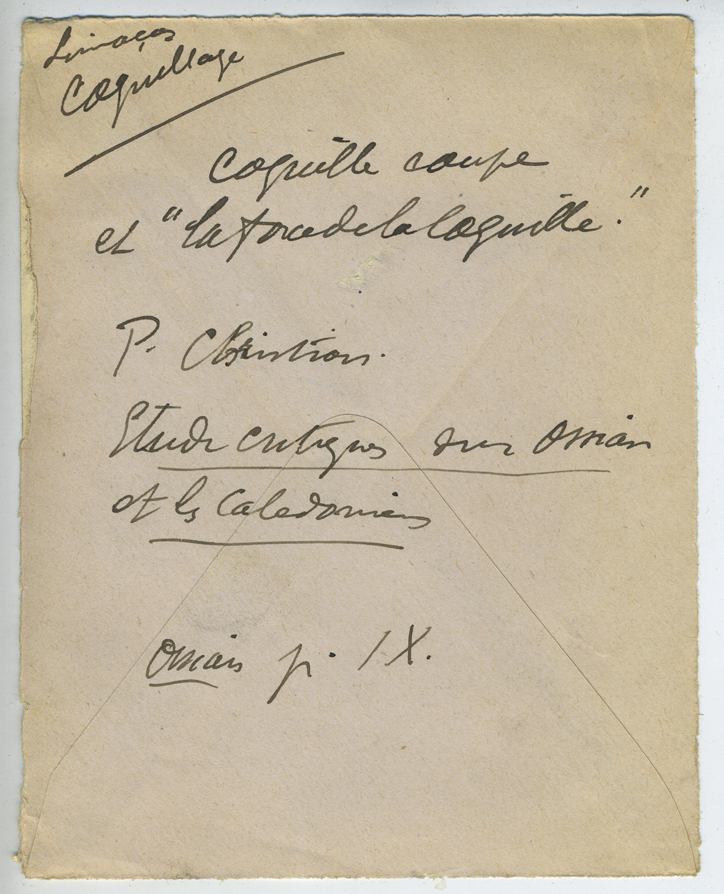 Limaços
Coquillage
Coquille coupe
et "la force de la Coquille."
P. Christian.
Etude critiques sur Ossian
et les Caledoniens
Ossian p. IX.